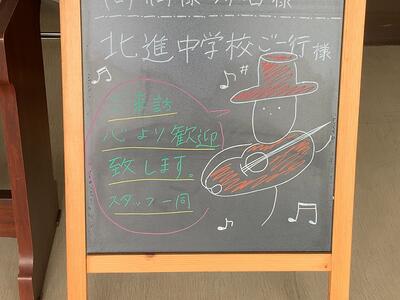 北進中学校ご一行様
ご来訪
心より歓迎
致します。
スタッフ一同